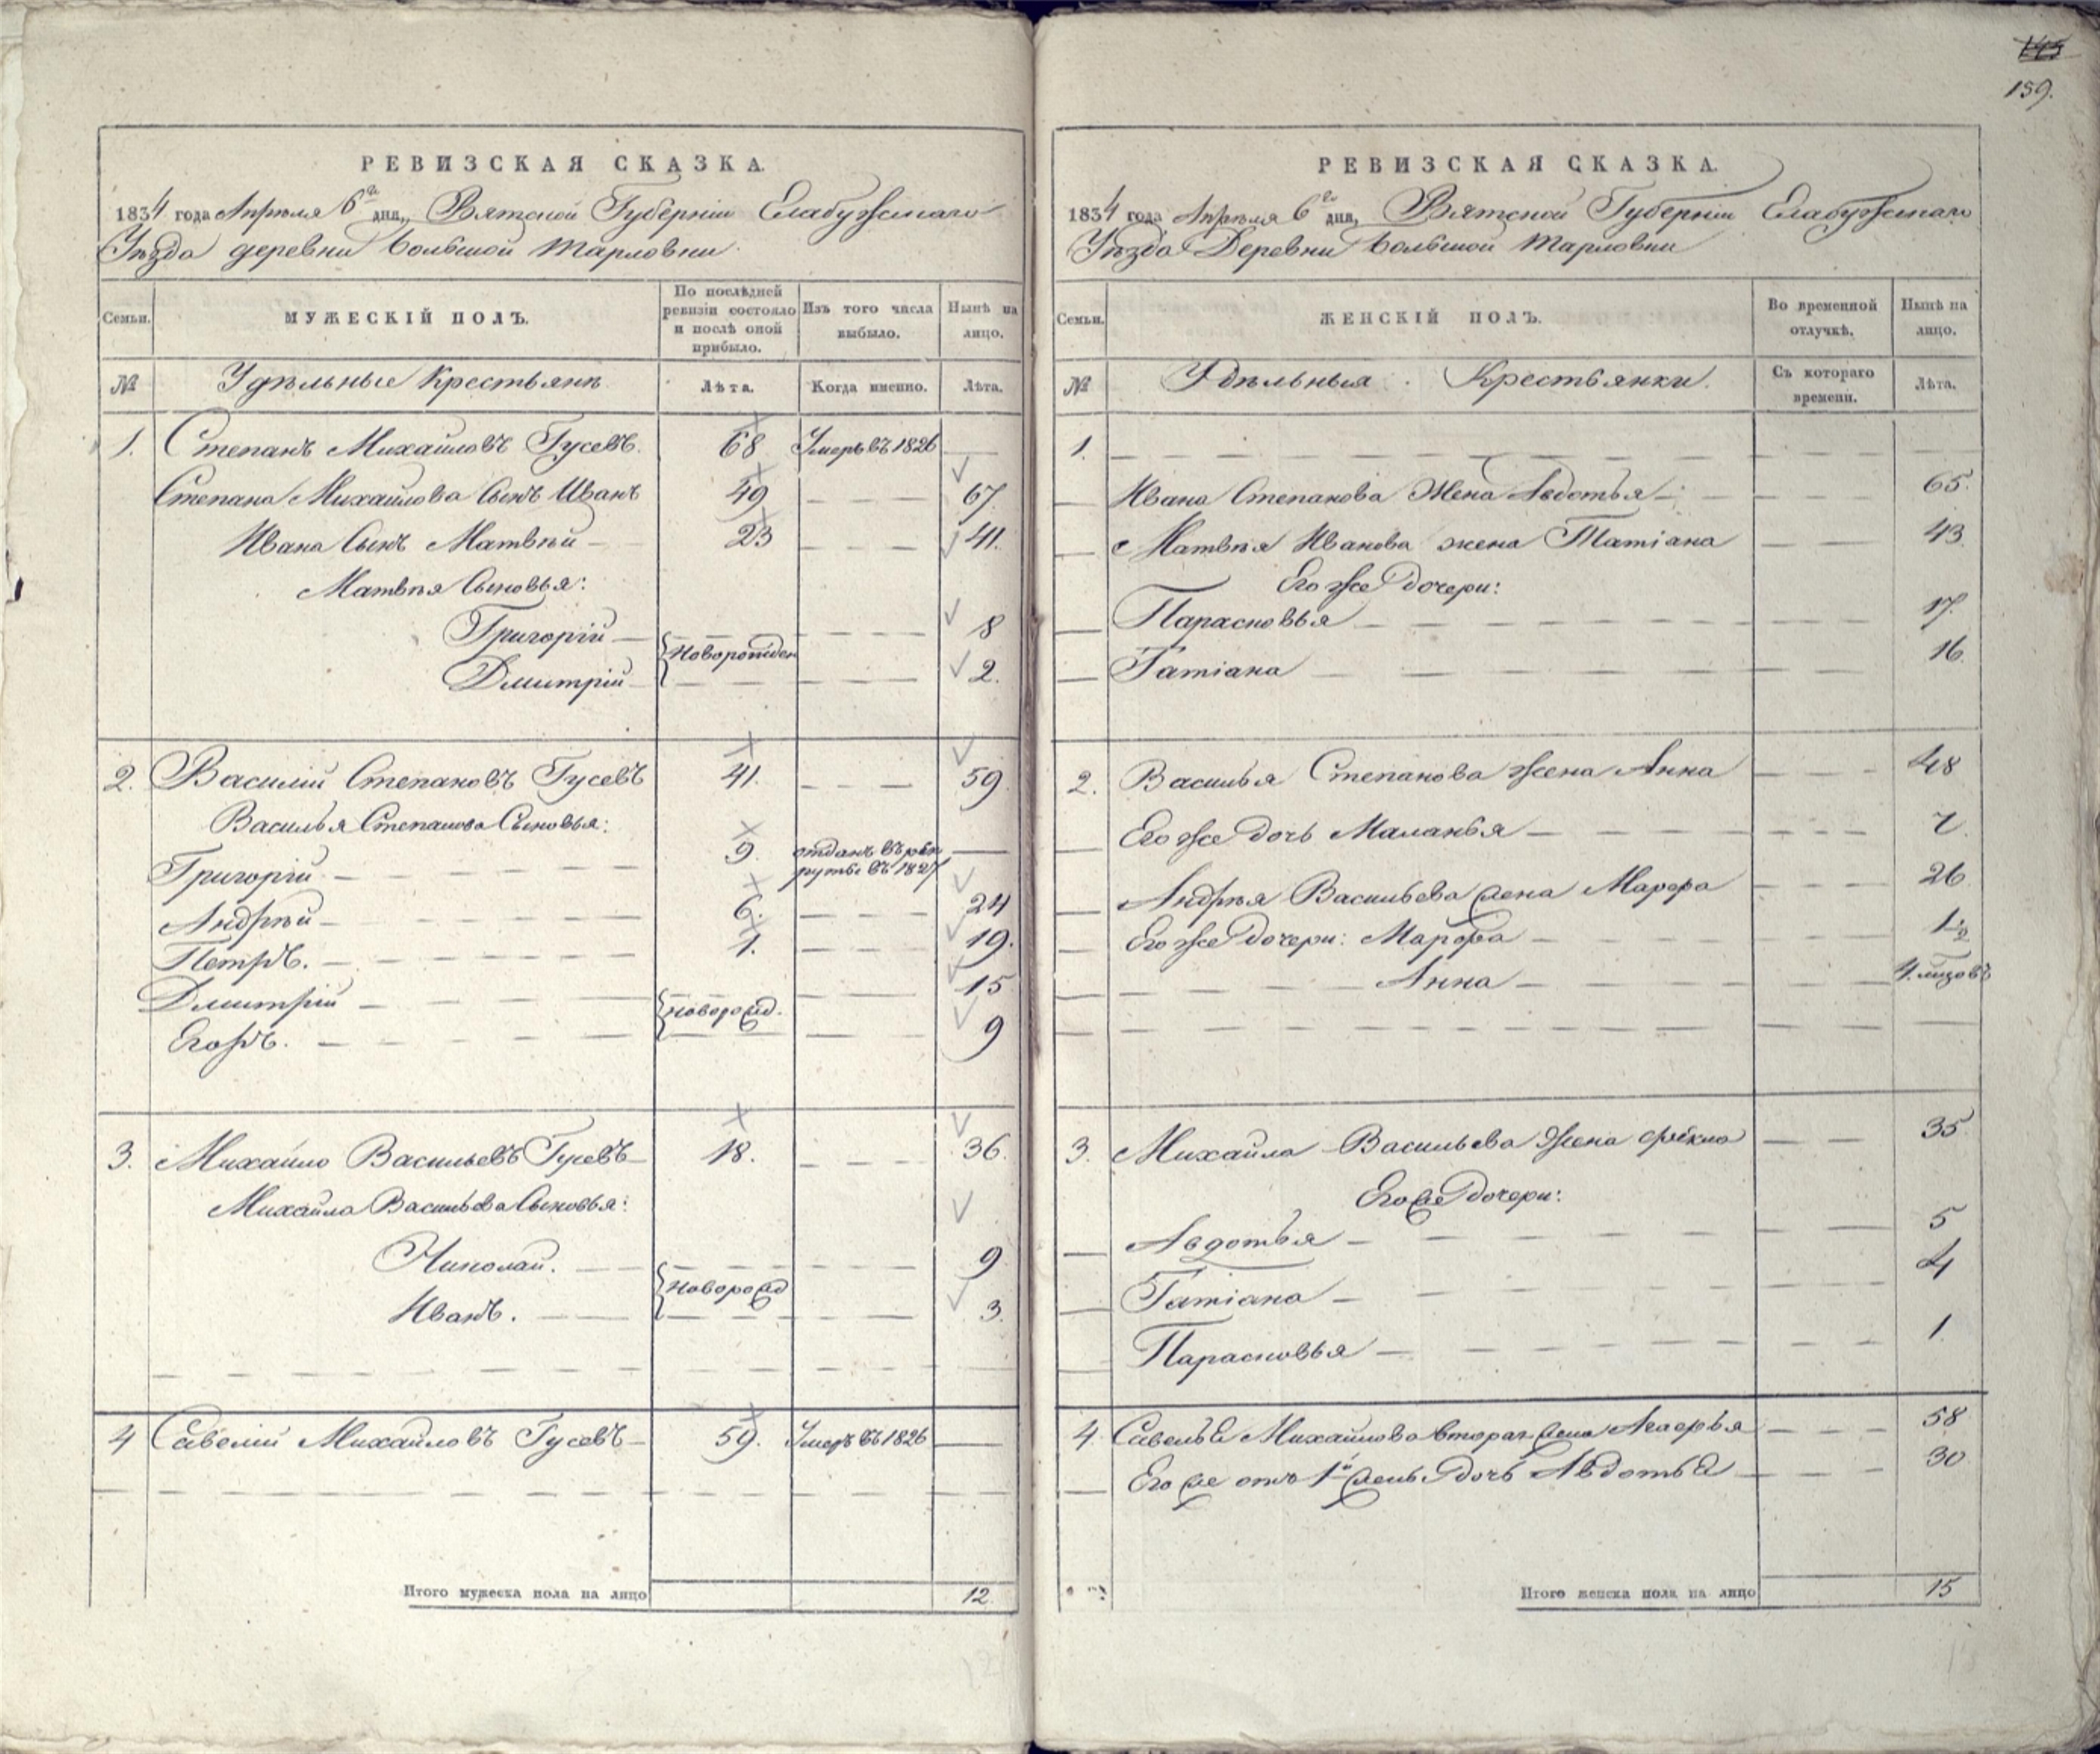 145
159.
РЕВИЗСКАЯ СКАЗКА.
1834 года Апрѣля 6го дня, Вятской Губерніи Елабужскаго
Уѣзда деревни Большой Тарловки.
Семьи.
МУЖЕСКІЙ ПОЛЪ.
По послѣдней ревизіи состояло и послѣ оной прибыло.
Изъ того числа выбыло.
Нынѣ на лицо.
№ Удѣльные Крестьяне Лѣта. Когда именно. Лѣта.
1. Степанъ Михайловъ Гусевъ. 68 Умеръ въ 1826 —
Степана Михайлова Сынъ Иванъ 49 — — — 67.
Ивана Сынъ Матвѣй — 23 — — — 41.
Матвѣя Сыновья:
Григорій — — — — — 8
Новорожден
Дмитрій — — — — — 2.
2. Василій Степановъ Гусевъ 41. — — — 59.
Василья Степанова Сыновья:
Григорій — 9. отданъ въ рекрутъы въ 1827 —
Андрѣй — 6. — — — 24
Петръ. — 1. — — — 19.
Дмитрій — — — — 15
Новорожд.
Егоръ. — — — — 9
3. Михайло Васильевъ Гусевъ — 18. — — — 36.
Михайла Васильева Сыновья:
Николай. — — — — 9
Новорожд
Иванъ. — — — — 3.
4 Савелій Михайловъ Гусевъ — 59. Умеръ въ 1826 —
Итого мужеска пола на лицо 12.
РЕВИЗСКАЯ СКАЗКА.
1834 года Апрѣля 6го дня, Вятской Губерніи Елабужскаго
Уѣзда Деревни Большой Тарловки
Семьи.
ЖЕНСКІЙ ПОЛЪ.
Во временной отлучкѣ.
Нынѣ на лицо.
№ Удѣльныя Крестьянки. Съ котораго времени. Лѣта.
1. — — — —
Ивана Степанова Жена Авдотья — — — 65.
Матвѣя Иванова жена Татіана — — 43.
Его же дочери:
Парасковья — — — 17.
Татіана — — — 16.
2. Василья Степанова жена Анна — — — 48
Его же дочь Маланья — — — 7.
Андрѣя Васильева жена Марфа — — — 26
Его же дочери: Марфа — — — 1½
Анна — — — 4. мѣсяцовъ
3. Михайла Васильева Жена Фекла — — 35
Его же дочери:
Авдотья — — — 5
Татіана — — — 4
Парасковья — — — 1.
4. Савелья Михайлова вторая жена Агафья — — — 58
Его же отъ 1й жены дочь Авдотья — — — 30
Итого женска пола на лицо 15